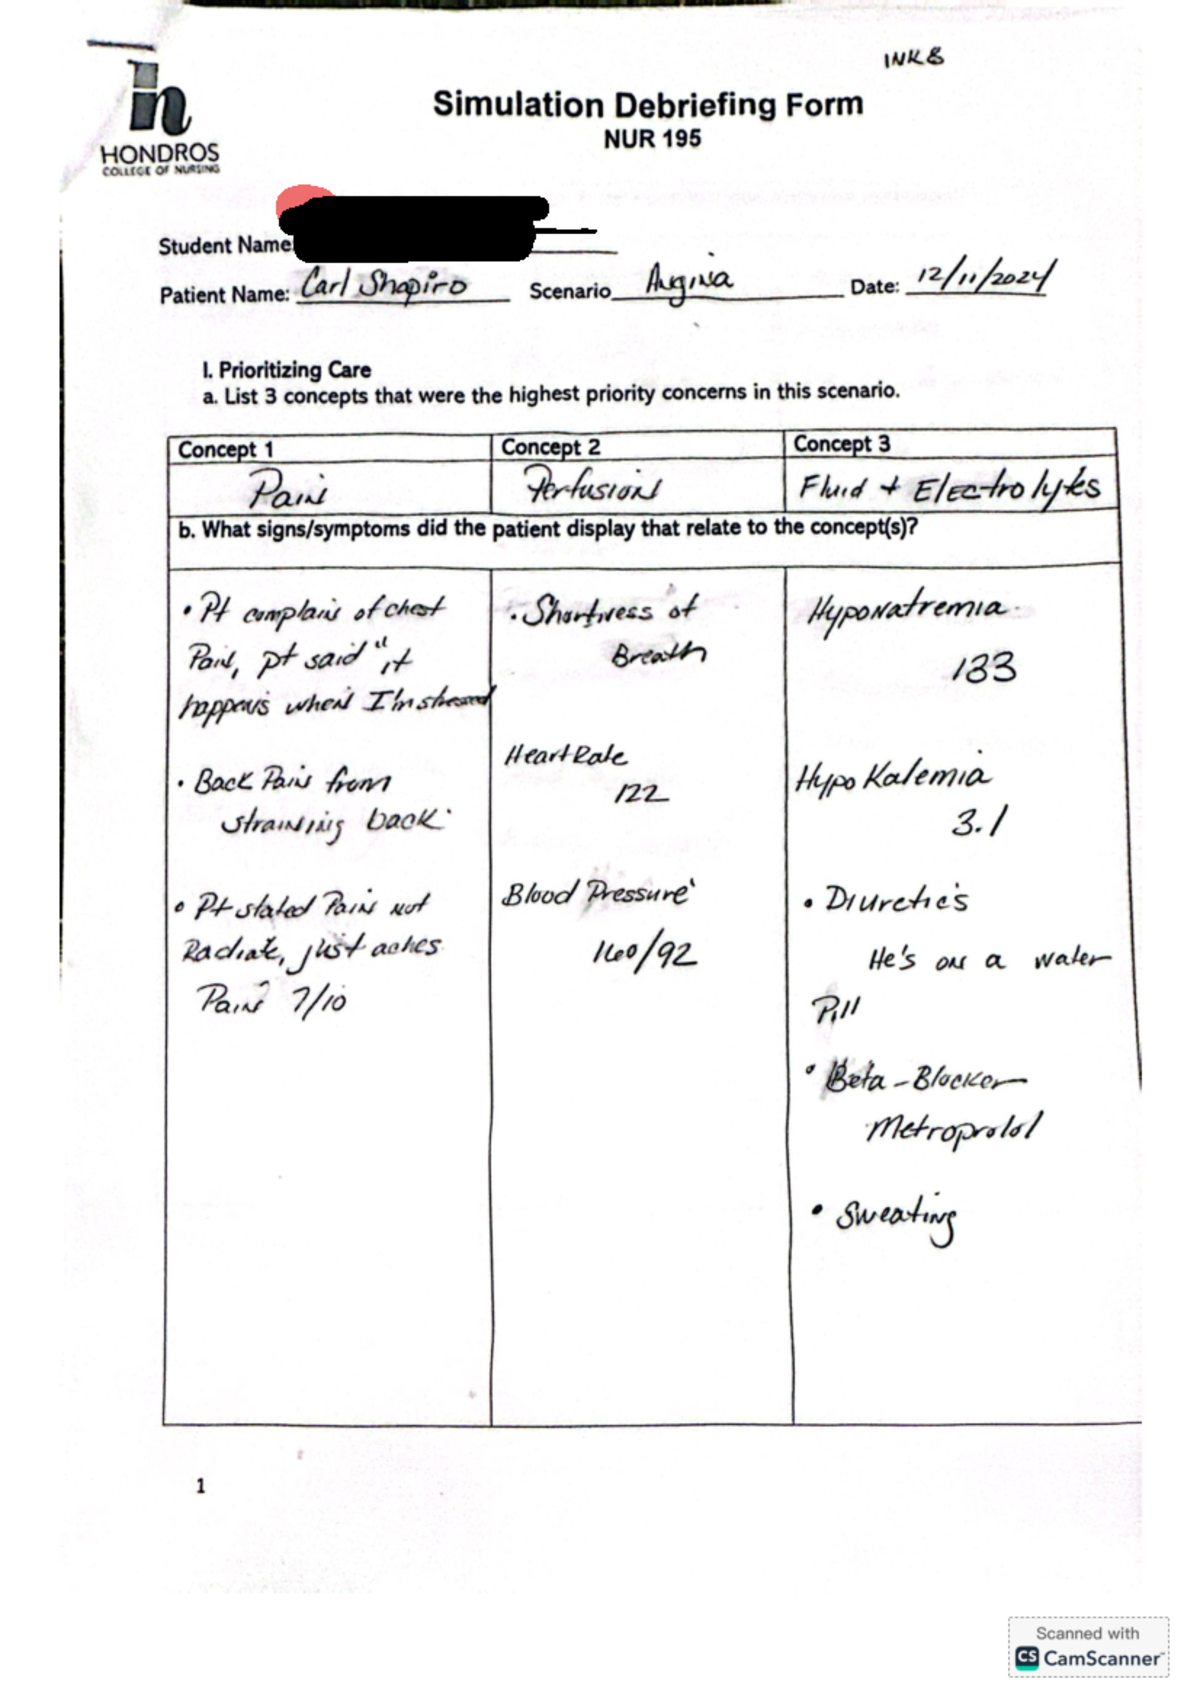 INK8
Simulation Debriefing Form
NUR 195
HONDROS
COLLEGE OF NURSING
Student Name:
Patient Name: Carl Shapiro Scenario Angina Date: 12/11/2024
I. Prioritizing Care
a. List 3 concepts that were the highest priority concerns in this scenario.
Concept 1 Concept 2 Concept 3
Pain Perfusion Fluid + Electrolytes
b. What signs/symptoms did the patient display that relate to the concept(s)?
• Pt complain of chest
Pain, pt said "it
happens when I'm stressed
• Back Pain from
straining back.
• Pt stated Pain not
Radiate, just aches
Pain 7/10
• Shortness of
Breath
Heart Rate
122
Blood Pressure
160/92
Hyponatremia
133
HypoKalemia
3.1
• Diuretic's
He's on a water
Pill
• Beta-Blocker
Metroprolol
• Sweating
1
Scanned with
CS CamScanner